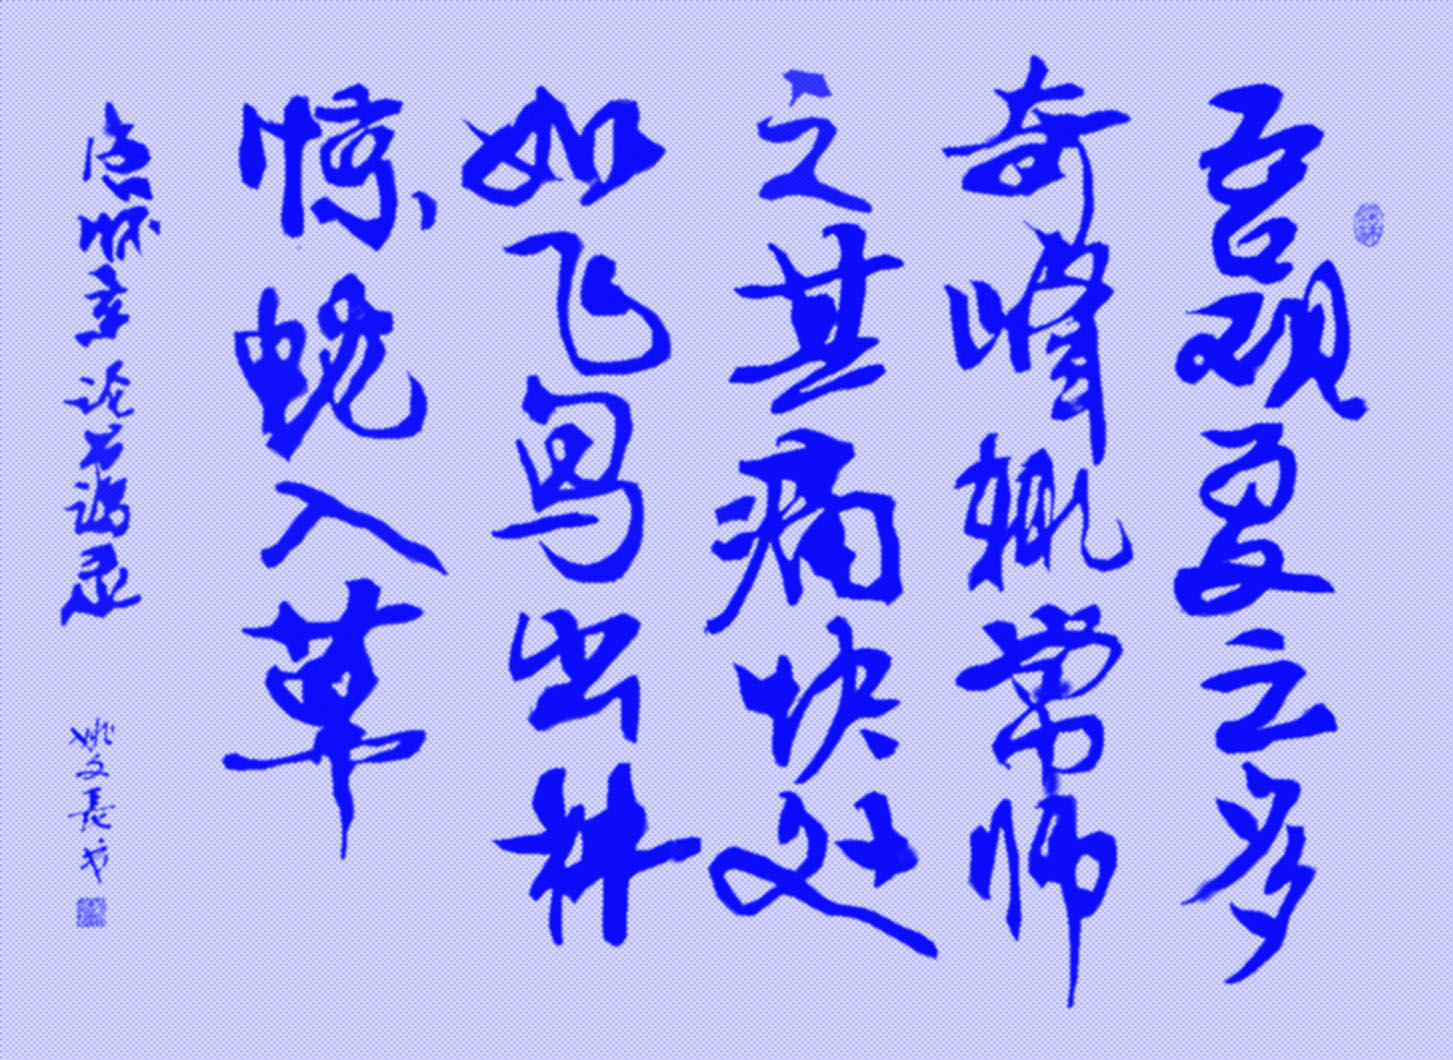 吾观夏云多
奇峰辄常师
之其痛快处
如飞鸟出林
惊蛇入草
唐怀素论书语录 姚文長书